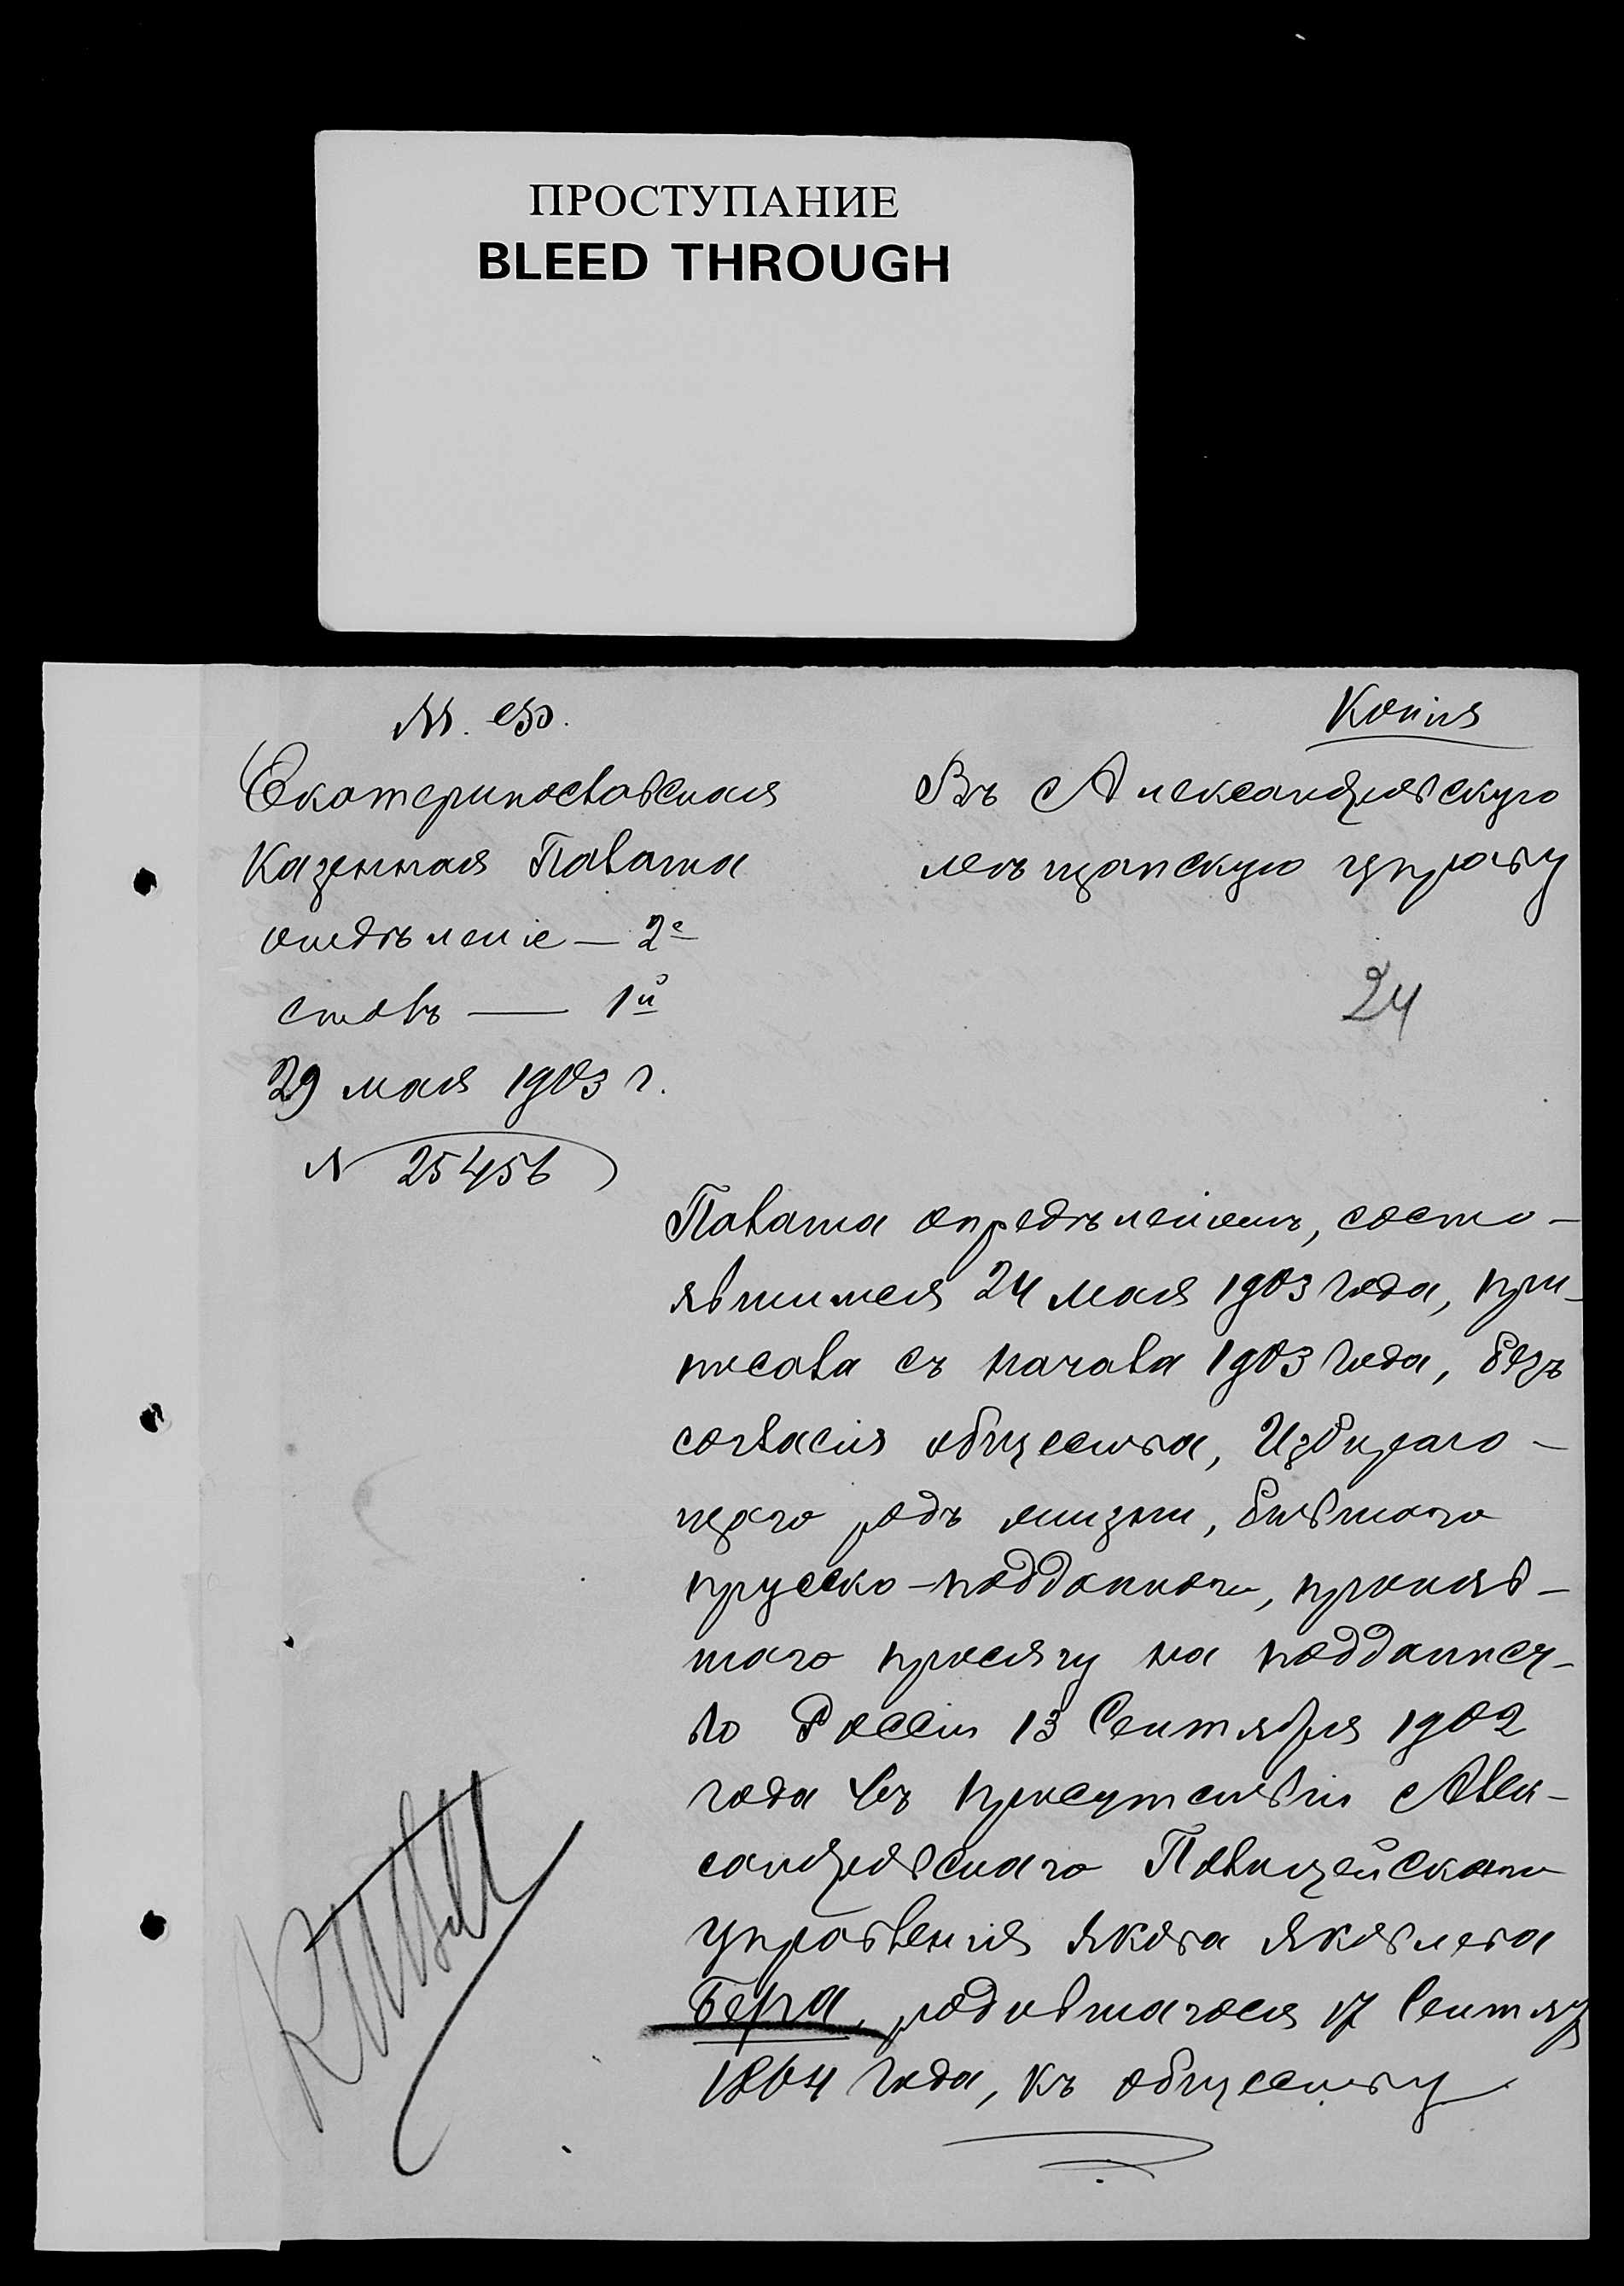 ПРОСТУПАНИЕ
BLEED THROUGH
М. Ф.
Копія
Екатеринославская
Казенная Палата
отдѣленіе — 2е
столъ — 1й
29 мая 1903 г.
N 25456
Въ Александровскую
мѣщанскую управу
24
Палата опредѣленіемъ, состо-
явшимся 24 мая 1903 года, при-
писала съ начала 1903 года, безъ
согласія общества, Избираю-
щаго родъ жизни, бывшаго
прусско-подданнаго, приняв-
шаго присягу на подданст-
во Россіи 13 Сентября 1902
года въ присутствіи Алек-
сандровскаго Полицейскаго
управленія Якова Яковлева
Бера, родившагося 17 Сентяб
1864 года, къ обществу